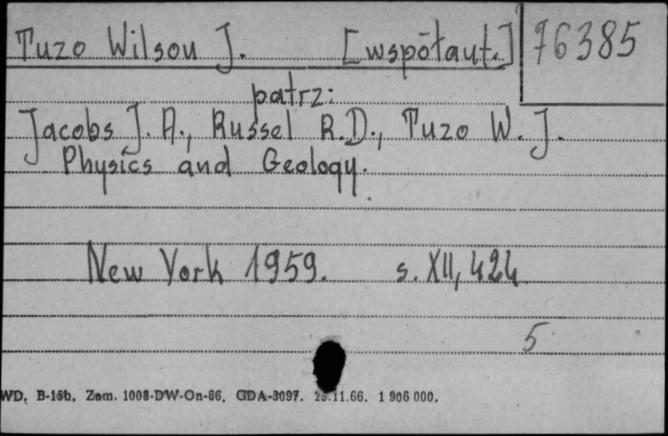 Tuzo Wilson J. [współaut.] 76385
patrz:
Jacobs J. A., Russel R.D., Tuzo W. J.
Physics and Geology.
New York 1959. s. XII, 424
5
WD. B-15b. Zam. 1008-DW-On-66. GDA-3097. 11.66. 1 906 000.